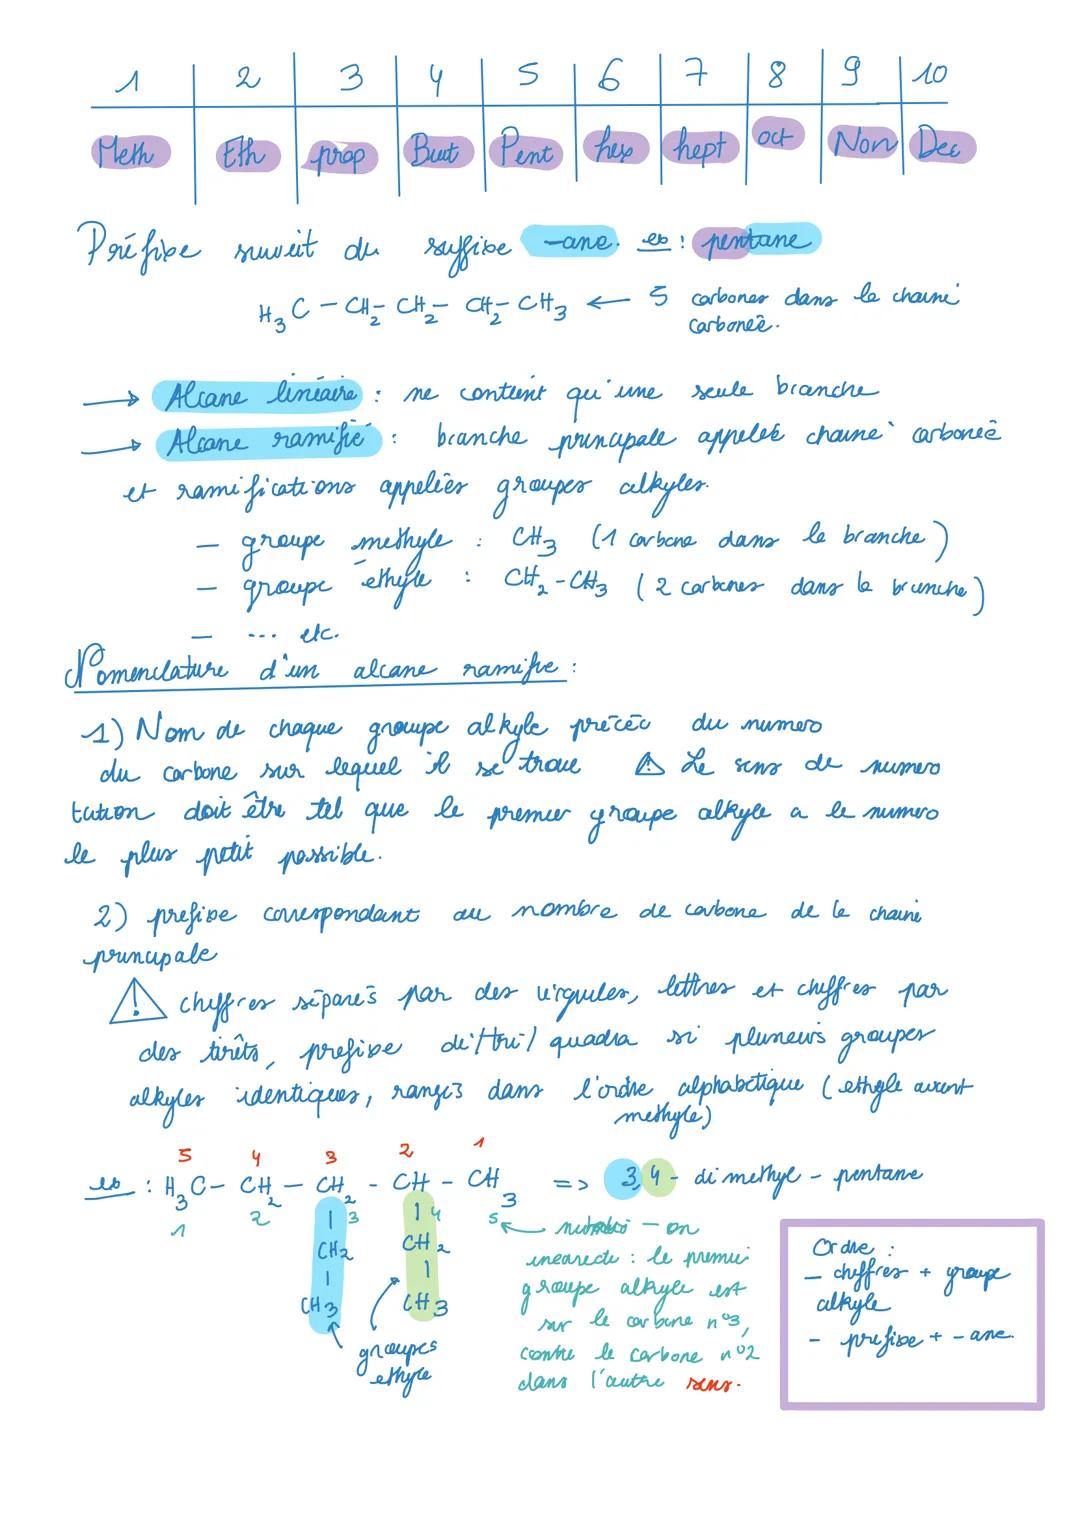 1 2 3 4 5 6 7 8 9 10
Meth Eth prop But Pent hex hept oct Non Dec
Préfixe suivit du suffixe -ane. ex : pentane
H3C - CH2 - CH2 - CH2 - CH3 ← 5 carbones dans la chaine
carbonée.
→ Alcane linéaire : ne contient qu'une seule branche
→ Alcane ramifié : branche principale appelée chaine carbonée
et ramifications appelées groupes alkyles.
- groupe methyle : CH3 (1 carbone dans la branche)
- groupe éthyle : CH2-CH3 (2 carbones dans la branche)
- ... etc.
Nomenclature d'un alcane ramifie :
1) Nom de chaque groupe alkyle précéc du numero
du carbone sur lequel il se trouve ⚠ Le sens de numero
tation doit être tel que le premier groupe alkyle a le numero
le plus petit possible.
2) prefixe correspondant au nombre de carbone de la chaine
principale
⚠ chiffres séparés par des virgules, lettres et chiffres par
des tirêts, prefixe di/tri/quadra si plusieurs groupes
alkyles identiques, rangés dans l'ordre alphabétique (ethyle avant
methyle)
5 4 3 2 1
ex : H3C - CH2 - CH2 - CH - CH3 => 3,4 - dimethyl - pentane
1 2 3 4 5
CH2 CH2
CH3 CH3
groupes
ethyle
← - on
incorrecte : le premier
groupe alkyle est
sur le carbone n°3,
contre le carbone n°2
dans l'autre sens.
Ordre :
- chiffres + groupe
alkyle
- prefixe + -ane.